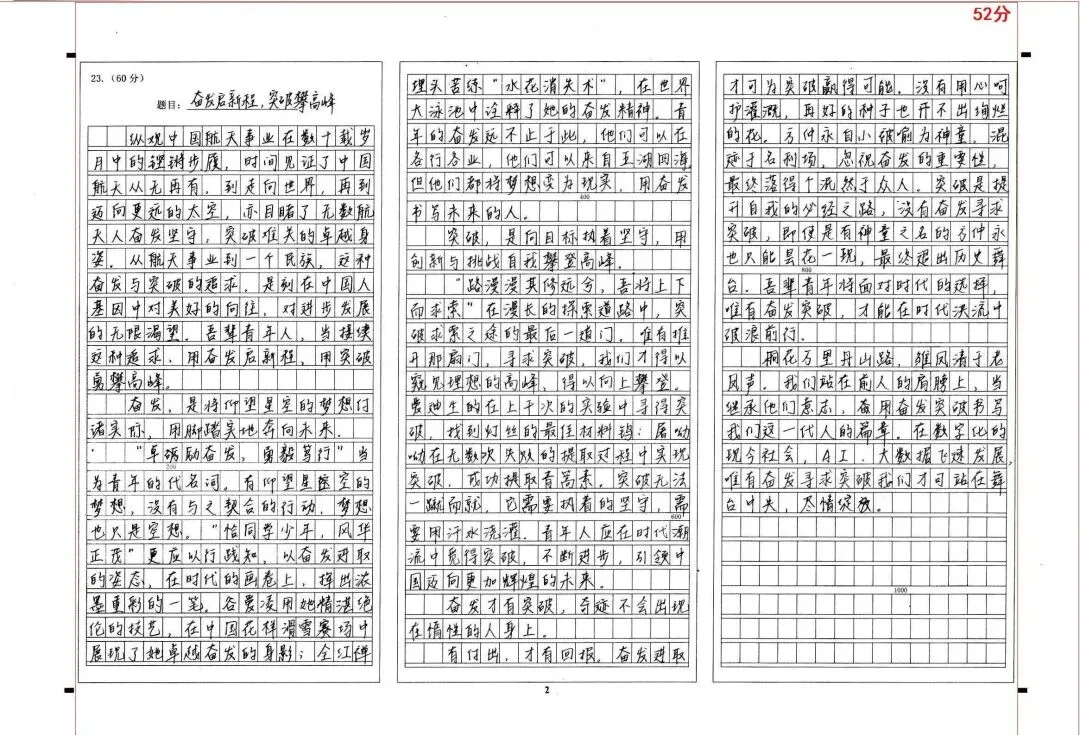 52分
23.（60分）
题目：奋发启新程，突破攀高峰
纵观中国航天事业在数十载岁
月中的铿锵步履，时间见证了中国
航天从无再有，到走向世界，再到
迈向更远的太空，亦目睹了无数航
天人奋发坚守，突破难关的卓越身
姿。从航天事业到一个民族，这种
奋发与突破的追求，是刻在中国人
基因中对美好的向往，对进步发展
的无限渴望。吾辈青年人，当接续
这种追求，用奋发启新程，用突破
勇攀高峰。
奋发，是将仰望星空的梦想付
诸实际，用脚踏实地奔向未来。
“卓砺励奋发，勇毅笃行”当
200
为青年的代名词。有仰望星空的
梦想，没有与之契合的行动，梦想
也只是空想。“恰同学少年，风华
正茂”更应以行践知，以奋发进取
的姿态，在时代的画卷上，挥出浓
墨重彩的一笔。谷爱凌用她精湛绝
伦的技艺，在中国花样滑雪赛场中
展现了她卓越奋发的身影；全红禅
埋头苦练“水花消失术”，在世界
大泳池中诠释了她的奋发精神。青
年的奋发远不止于此，他们可以在
各行各业，他们可以来自五湖四海
但他们都将梦想变为现实，用奋发
400
书写未来的人。
突破，是向目标执着坚守，用
创新与挑战自我攀登高峰。
“路漫漫其修远兮，吾将上下
而求索”在漫长的探索道路中，突
破求索之途的最后一道门。唯有推
开那扇门，寻求突破，我们才得以
窥见理想的高峰，得以向上攀登。
爱迪生的在上千次的实验中寻得突
破，找到灯丝的最佳材料钨；屠呦
呦在无数次失败的提取过程中实现
突破，成功提取青蒿素。突破无法
一蹴而就，它需要执着的坚守，需
600
要用汗水浇灌。青年人应在时代潮
流中觅得突破，不断进步，引领中
国迈向更加辉煌的未来。
奋发才有突破，奇迹不会出现
在惰性的人身上。
有付出，才有回报。奋发进取
才可为突破赢得可能。没有用心呵
护灌溉，再好的种子也开不出绚烂
的花。方仲永自小被喻为神童，混
迹于名利场，忽视奋发的重要性，
最终落得个泯然于众人。突破是提
升自我的必经之路，没有奋发寻求
突破，即使是有神童之名的方仲永
也只能昙花一现，最终退出历史舞
800
台。吾辈青年将面对时代的选择，
唯有奋发突破，才能在时代洪流中
破浪前行。
桐花万里丹山路，雏凤清于老
凤声。我们站在前人的肩膀上，当
继承他们意志，奋用奋发突破书写
我们这一代人的篇章。在数字化的
现今社会，AI、大数据飞速发展，
唯有奋发寻求突破我们才可站在舞
台中央，尽情绽放。
1000
2